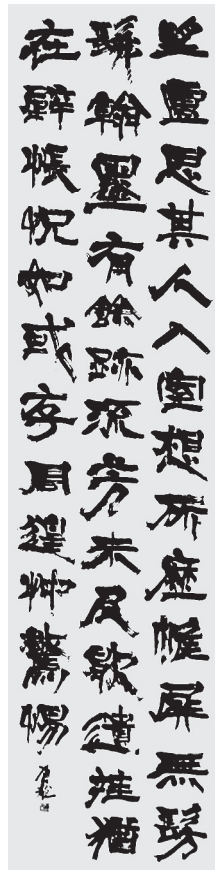 望廬思其人入室想所歷帷屏無髣
髴翰墨有餘跡流芳未及歇遺挂猶
在壁悵怳如或存周遑忡驚惕